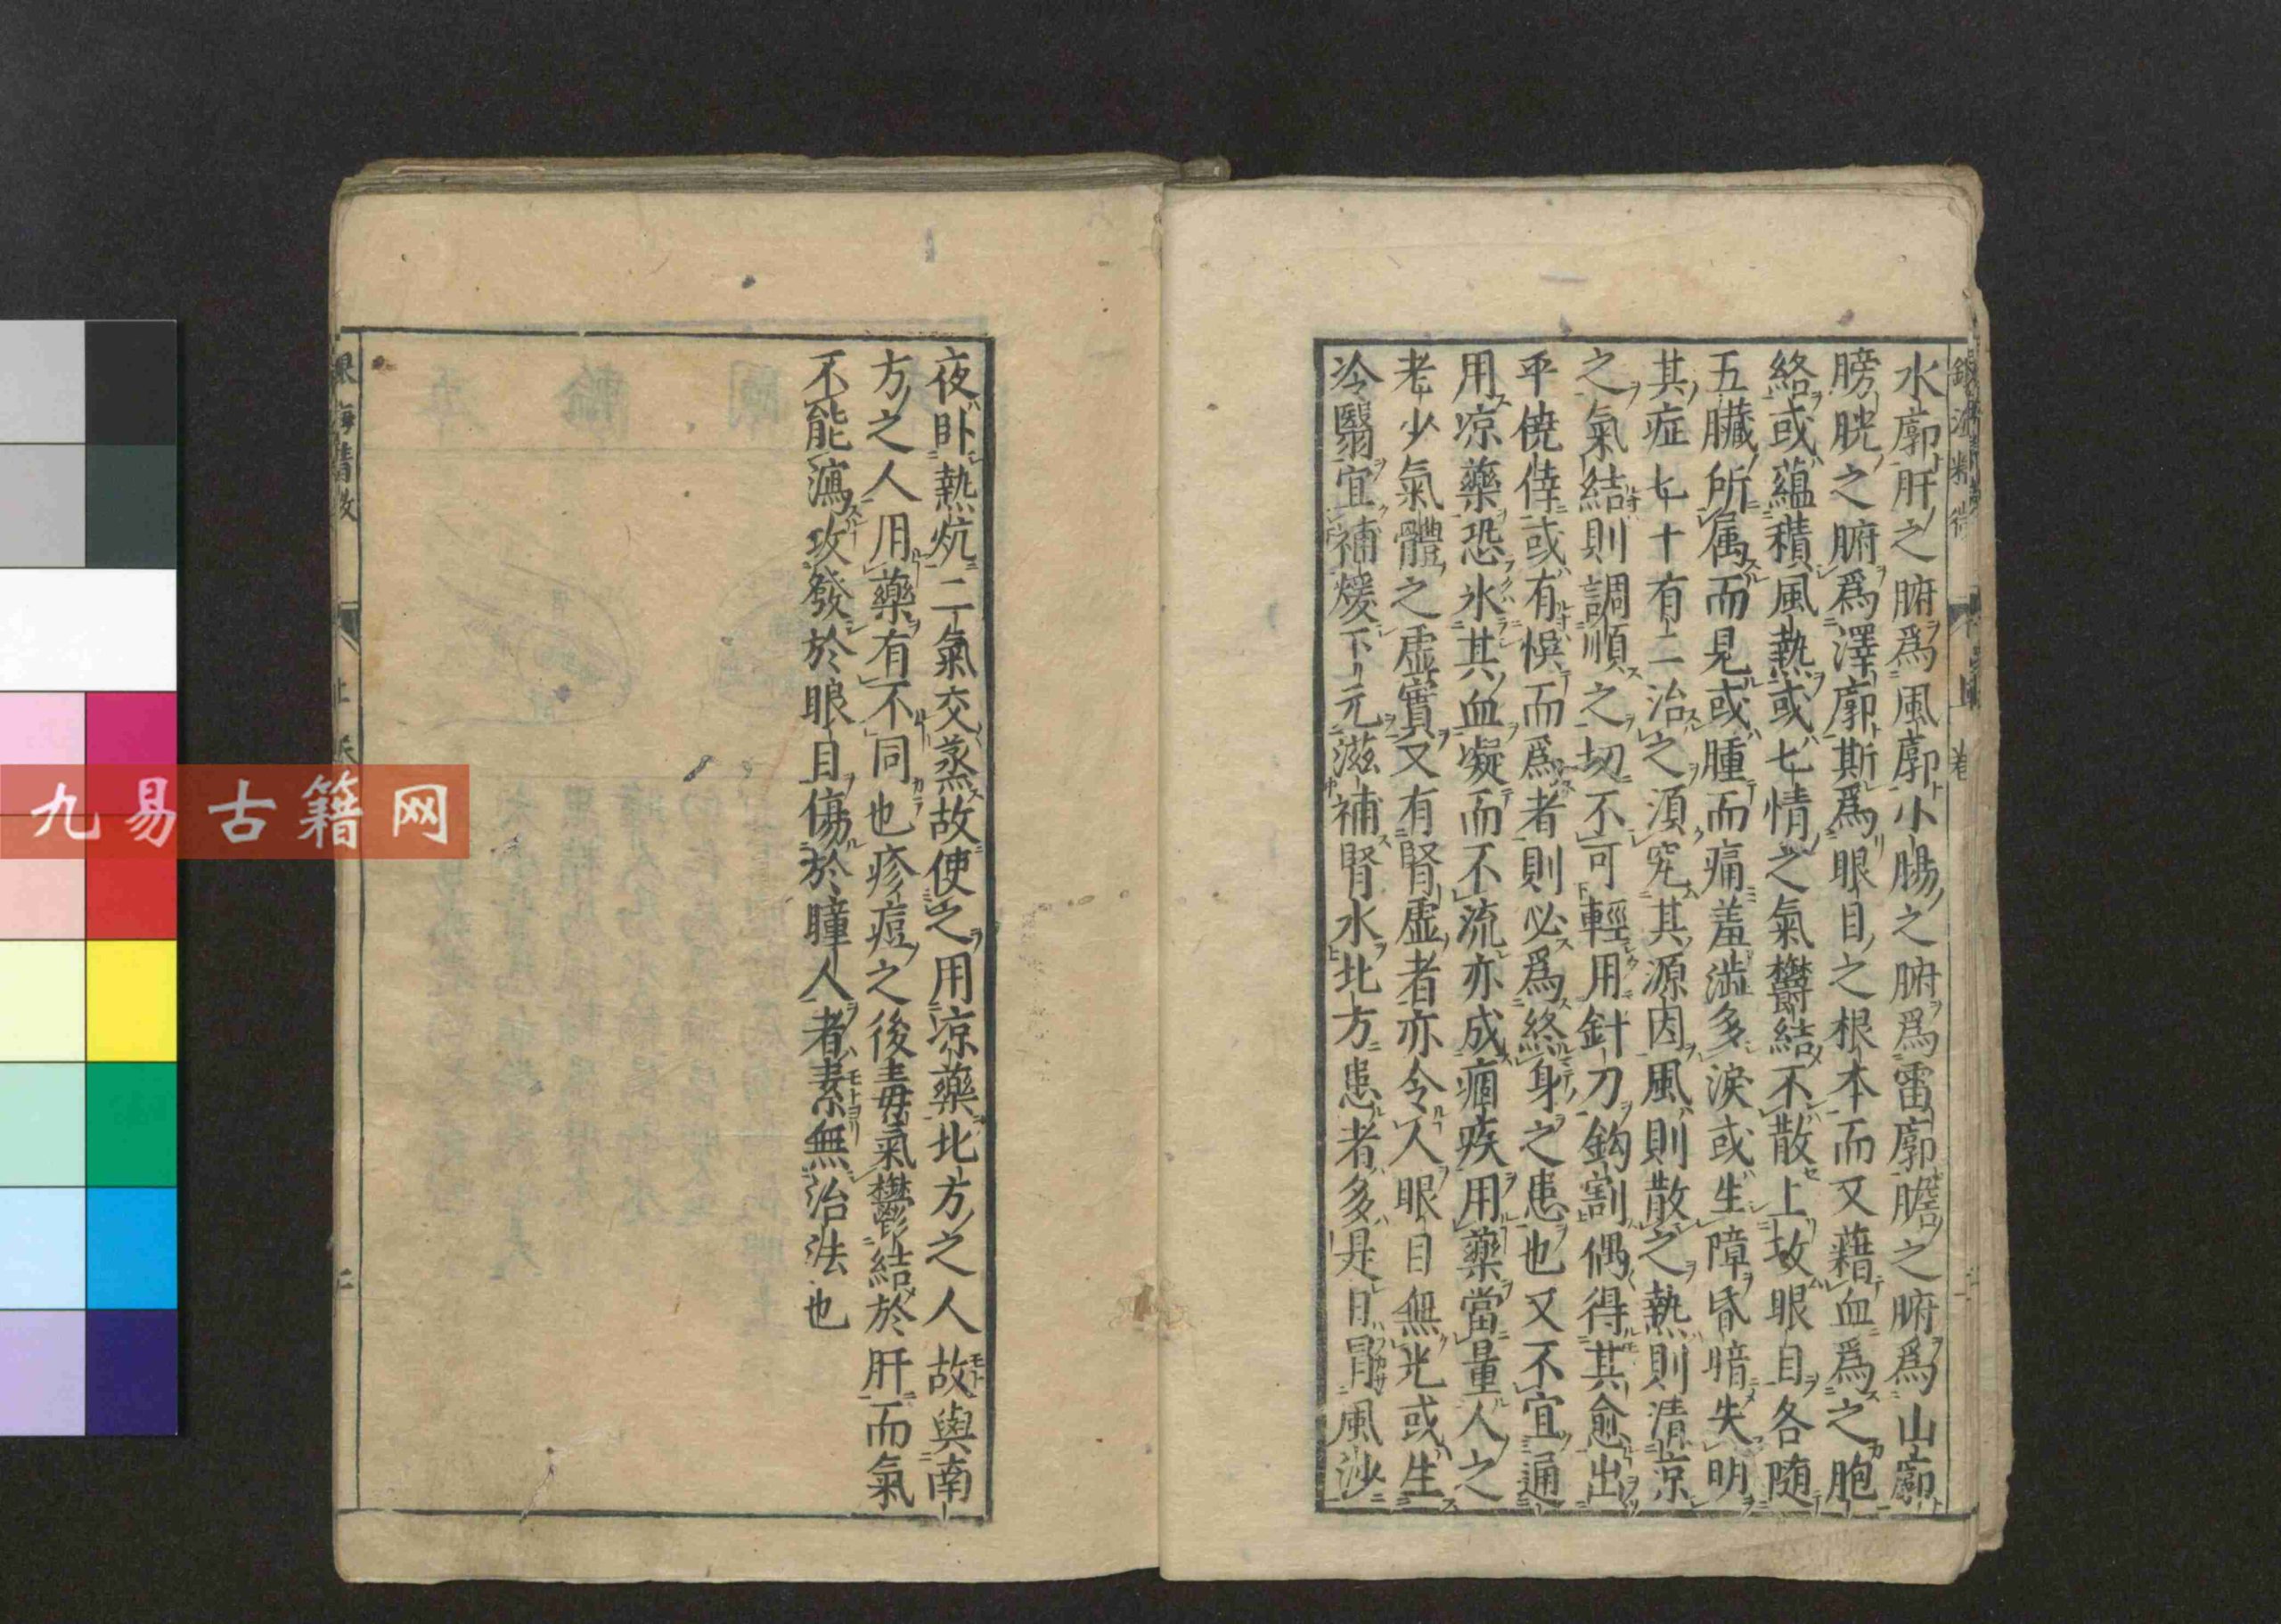 水廓肝之腑爲風廓小腸之腑爲雷廓膽之腑爲山廓
膀胱之腑爲澤廓斯爲眼目之根本而又藉血爲之胞
絡或蘊積風熱或七情之氣鬱結不散上攻眼目各随
五臟所属而見或腫而痛羞澁多淚或生障昏暗失明
其症七十有二治之湏究其源因風則散之熱則清凉
之氣結則調順之切不可輕用針刀鈎割偶得其愈出
乎僥倖或有悮而爲者則必爲終身之患也又不宜通
用凉藥恐氷其血凝而不流亦成痼疾用藥當量人之
老少氣體之虛實又有腎虛者亦令人眼目無光或生
冷翳宜補煖下元滋補腎水北方患者多是日冐風沙
夜卧熱炕二氣交蒸故使之用凉藥北方之人故與南
方之人用藥有不同也疹痘之後毒氣鬱結於肝而氣
不能瀉攻發於眼目傷於瞳人者素無治法也
銀海精微
上卷
二
九易古籍网